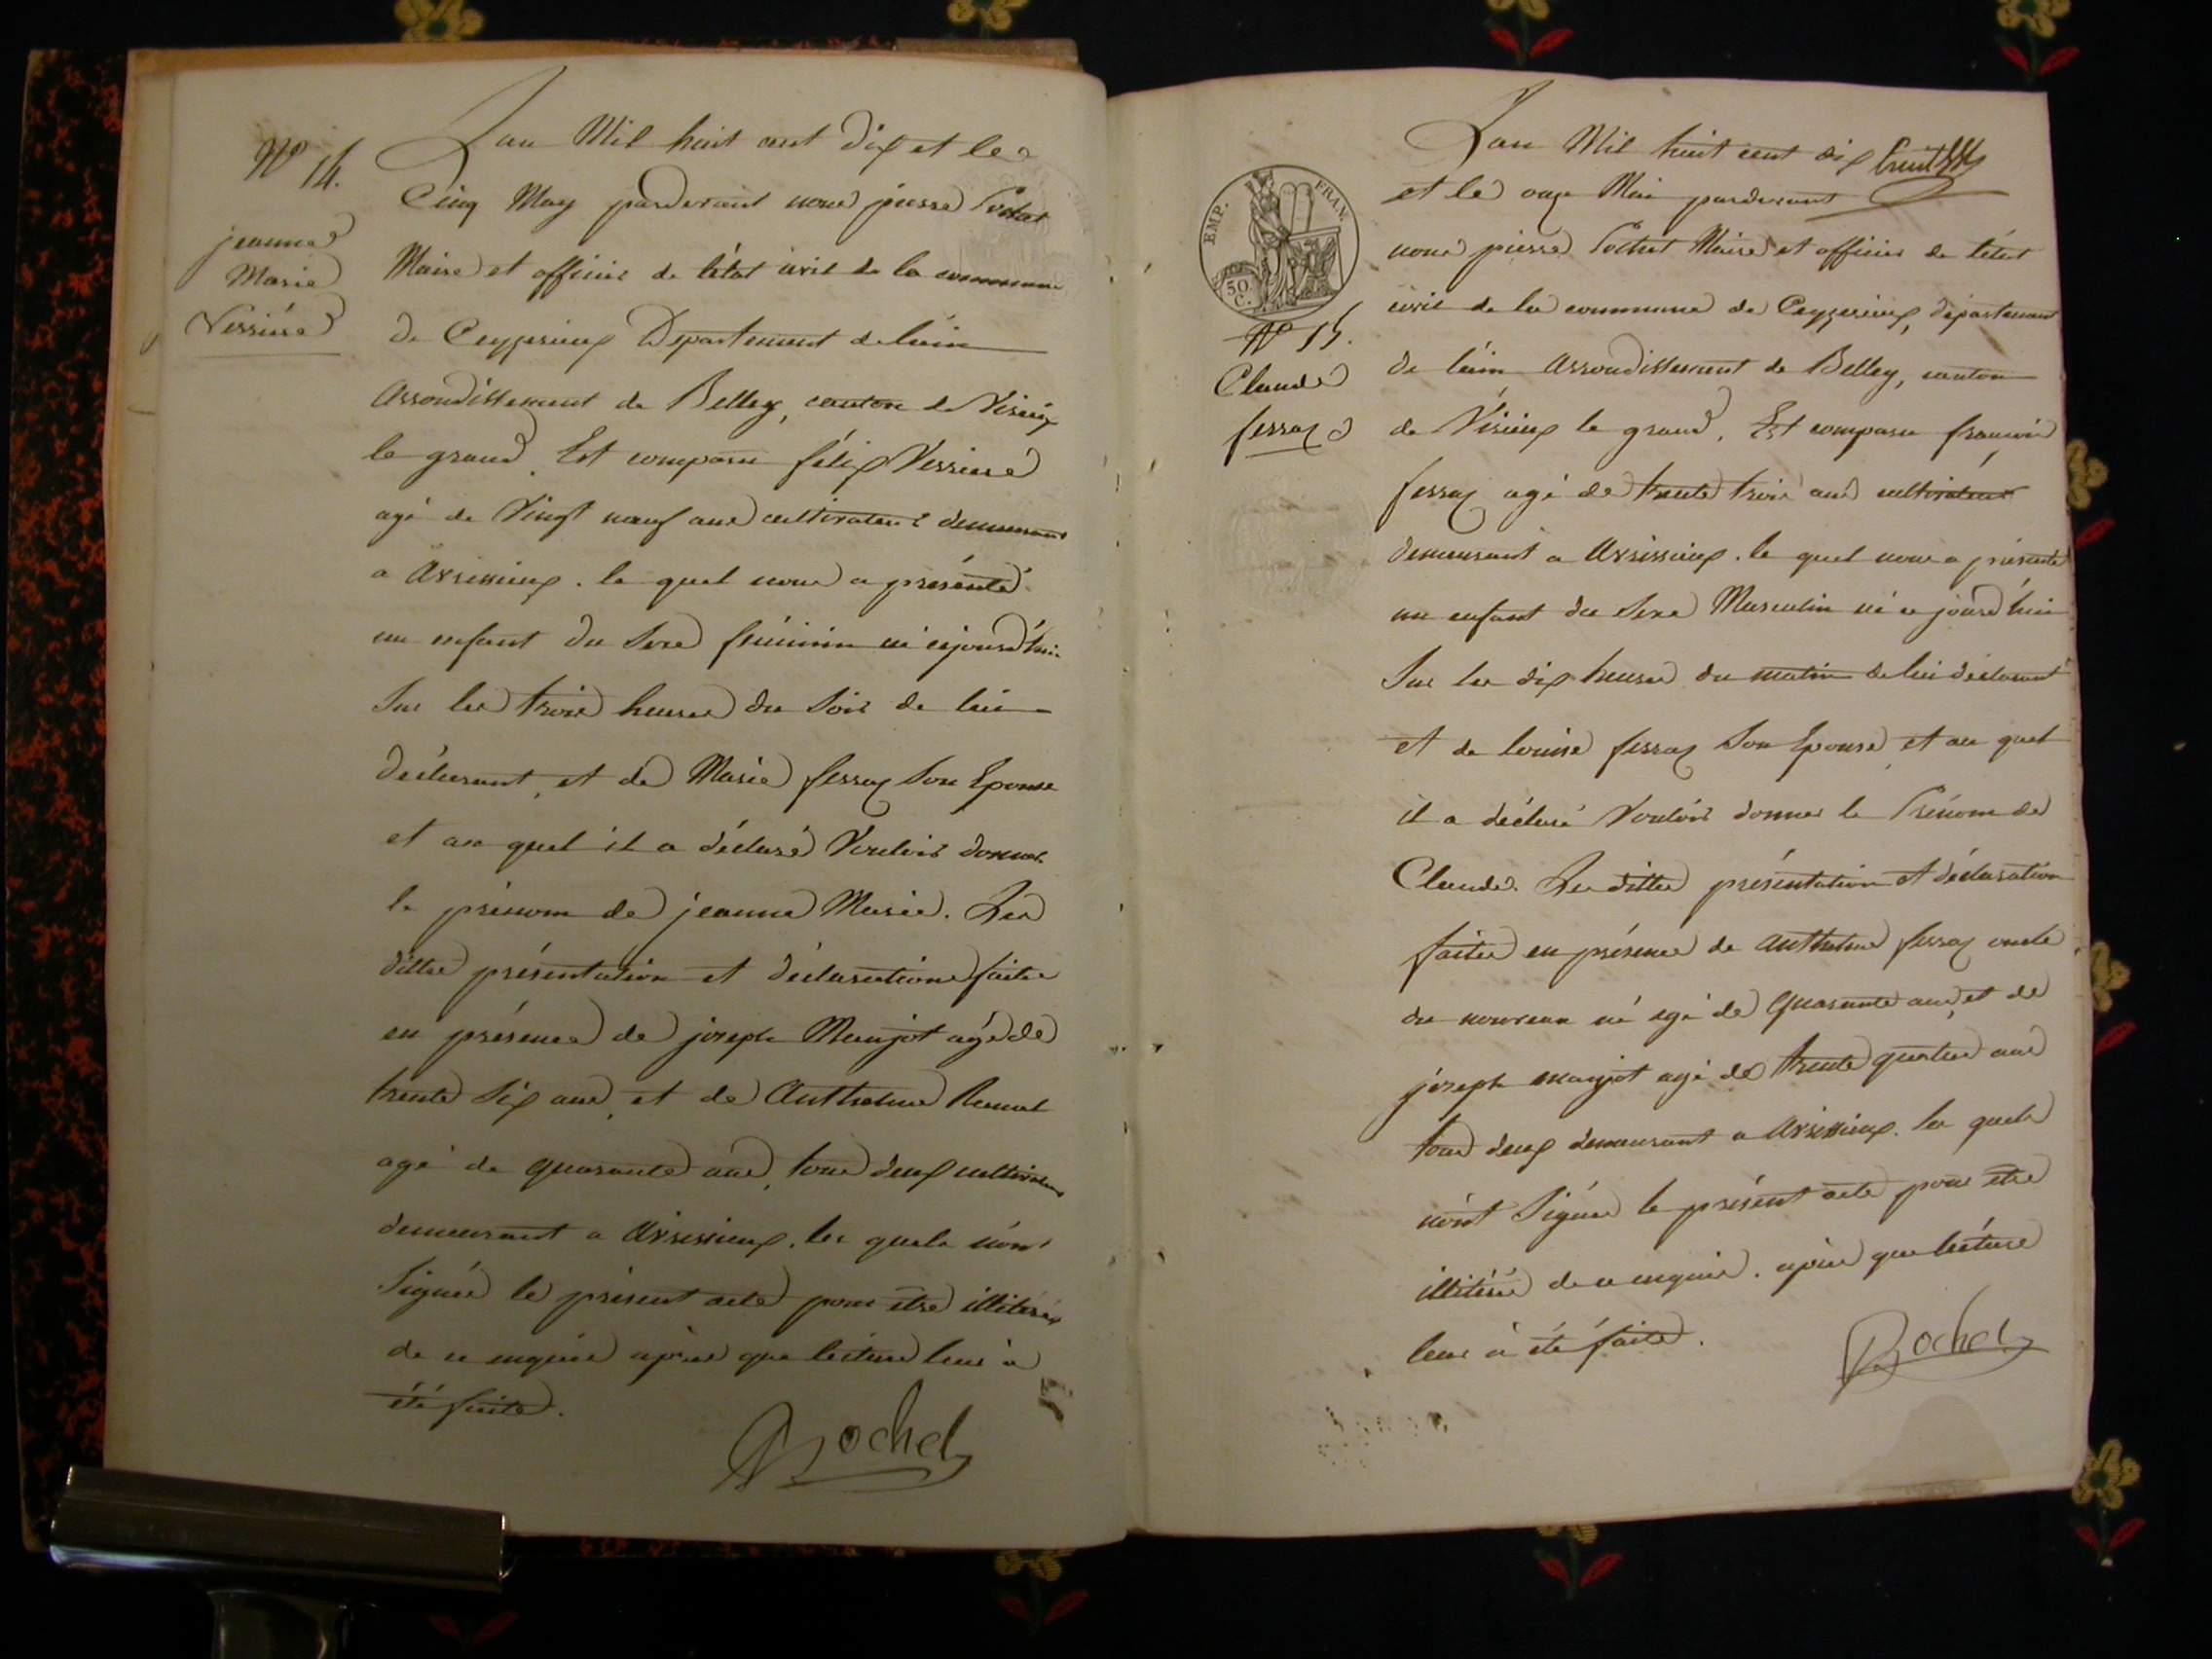 Nº 14.
jeanne
Marie
Verriere
Lan Mil huit cent dix et le
Cinq May pardevant nous pierre Pochet
Maire et officier de létat civil de la commune
de Ceyzerieux Departement de láin
Arrondissement de Belley, canton de Virieux
le grand. Est comparu félix Verriere
agé de Vingt neuf ans cultivateur demeurant
a Avrissieux. le quel nous a présenté
un enfant du Sexe féminin né cejourd'hui
Sur les trois heures du Soir de lui
déclarant, et de Marie ferraz Son Epouse
et au quel il a déclaré Vouloir donner
le prénom de jeanne Marie. Les
dittes présentation et déclaration faites
en présence de joseph Maujot agé de
trente Six ans, et de Anthelme
agé de quarante ans, tous deux cultivateurs
demeurant a Avrissieux. les quels n'ont
Signés le présent acte pour etre illiterés
de ce enquis après que lecture leur à
été faite.
Pochet
EMP. FRAN.
50. C.
Nº 15.
Claude
ferraz
Lan Mil huit cent dix
et le onze Mai pardevant
nous pierre Pochet Maire et officier de létat
civil de la commune de Ceyzerieux, département
de láin Arrondissement de Belley, canton
de Virieux le grand. Est comparu francois
ferraz agé de trente trois ans cultivateur
demeurant a Avrissieux. le quel nous a présenté
un enfant du Sexe Masculin né ce jourd'hui
Sur les dix heures du matin de lui déclarant
et de louise ferraz Son Epouse, et au quel
il a déclaré Vouloir donner le Prénom de
Claude. Les dittes présentation et déclaration
faites en présence de anthelme ferraz oncle
du nouveau né agé de quarante ans, et de
joseph maujot agé de trente quatre ans
tous deux demeurant a Avrissieux. les quels
n'ont Signés le présent acte pour etre
illitérés de ce enquis. après que lecture
leur à été faite.
Pochet